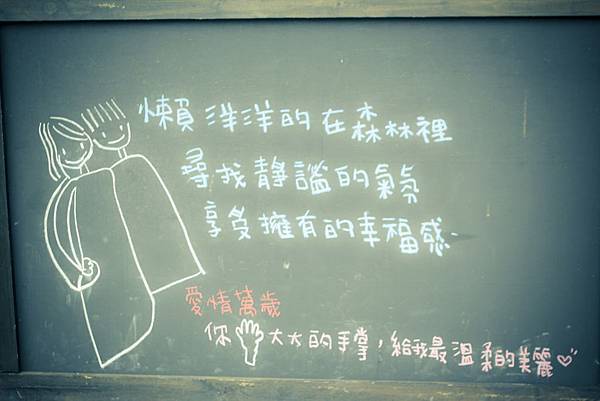 懶洋洋的在森林裡
尋找靜謐的氣氛
享受擁有的幸福感
愛情萬歲
你大大的手掌，給我最溫柔的美麗